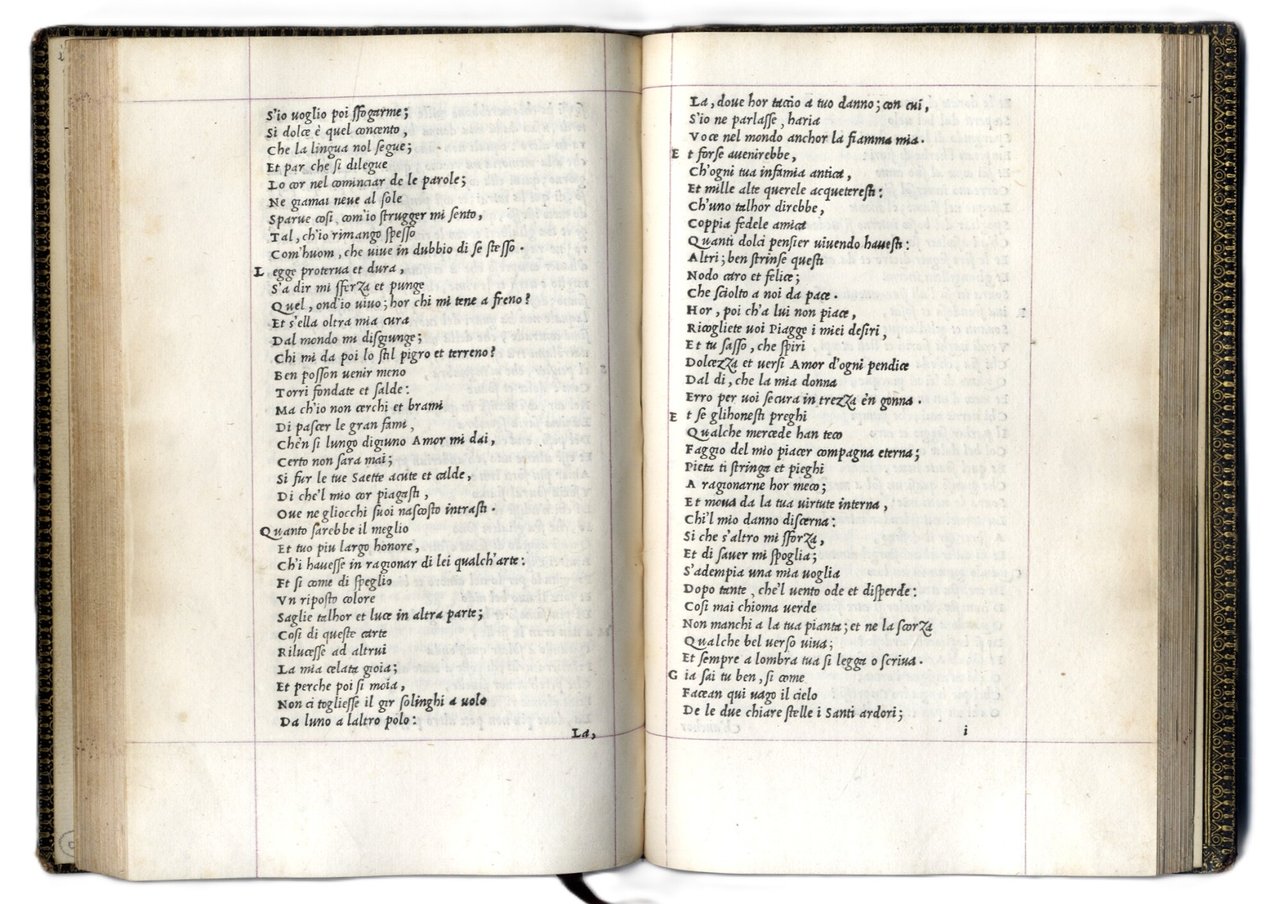 S'io uoglio poi sfogarme;
Si dolce è quel concento,
Che la lingua nol segue;
Et par che si dilegue
Lo cor nel cominciar de le parole;
Ne giamai neue al sole
Sparue cosi, com'io strugger mi sento,
Tal, ch'io rimango spesso
Com'huom, che uiue in dubbio di se stesso.
L egge proterua et dura,
S'a dir mi sferza et punge
Quel, ond'io uiuo; hor chi mi tene a freno?
Et s'ella oltra mia cura
Dal mondo mi disgiunge;
Chi mi da poi lo stil pigro et terreno?
Ben posson uenir meno
Torri fondate et salde:
Ma ch'io non cerchi et brami
Di pascer le gran fami,
Chèn si lungo digiuno Amor mi dai,
Certo non sara mai;
Si fur le tue Saette acute et calde,
Di che'l mio cor piagasti,
Oue ne gliocchi suoi nascosto intrasti.
Quanto sarebbe il meglio
Et tuo piu largo honore,
Ch'i hauesse in ragionar di lei qualch'arte:
Et si come di speglio
Vn riposto colore
Saglie talhor et luce in altra parte;
Cosi di queste carte
Rilucesse ad altrui
La mia celata gioia;
Et perche poi si moia,
Non ci togliesse il gir solinghi a uolo
Da luno a laltro polo:
La,
La, doue hor taccio a tuo danno; con cui,
S'io ne parlasse, haria
Voce nel mondo anchor la fiamma mia.
E t forse auenirebbe,
Ch'ogni tua infamia antica,
Et mille alte querele acqueteresti:
Ch'uno talhor direbbe,
Coppia fedele amica
Quanti dolci pensier uiuendo hauesti:
Altri; ben strinse questi
Nodo caro et felice;
Che sciolto a noi da pace.
Hor, poi ch'a lui non piace,
Ricogliete uoi Piagge i miei desiri,
Et tu sasso, che spiri
Dolcezza et uersi Amor d'ogni pendice
Dal di, che la mia donna
Erro per uoi secura in trezza èn gonna.
E t se glihonesti preghi
Qualche mercede han teco
Faggio del mio piacer compagna eterna;
Pieta ti stringa et pieghi
A ragionarne hor meco;
Et moua da la tua uirtute interna,
Chi'l mio danno discerna:
Si che s'altro mi sforza,
Et di sauer mi spoglia;
S'adempia una mia uoglia
Dopo tante, che'l uento ode et disperde:
Cosi mai chioma uerde
Non manchi a la tua pianta; et ne la scorza
Qualche bel uerso uiua;
Et sempre a lombra tua si legga o scriua.
G ia sai tu ben, si come
Facean qui uago il cielo
De le due chiare stelle i Santi ardori;
i